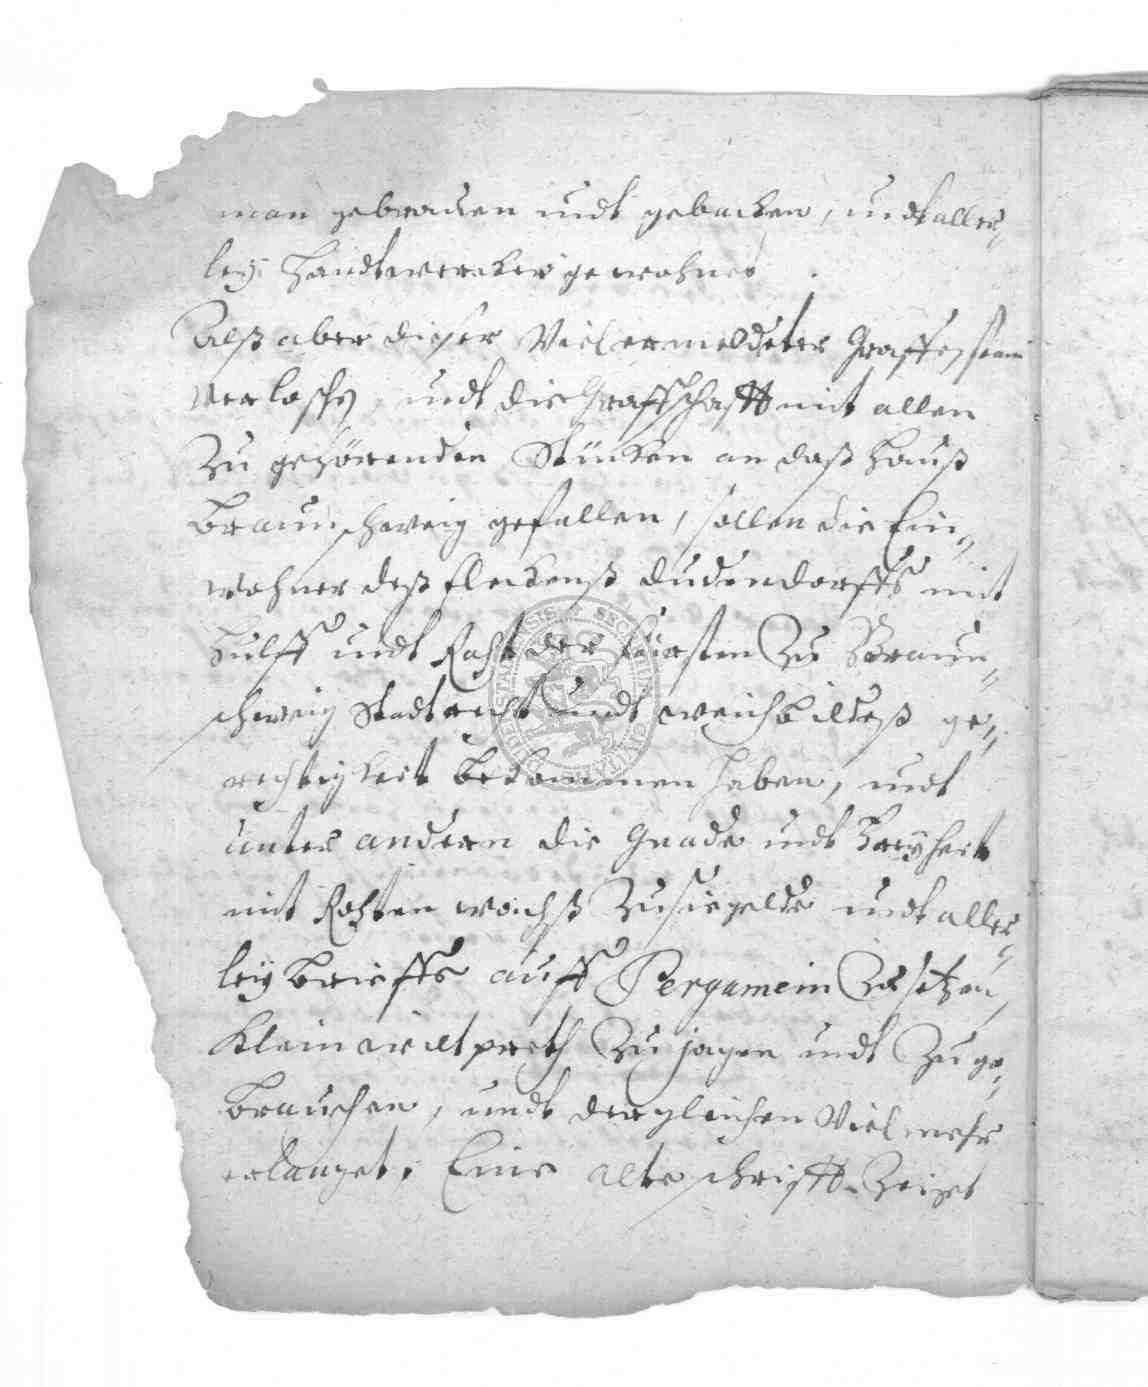 man gebrauen undt gebacken, undt aller,
ley handtwercker gewohnet.
Alß aber dieser Viel ermeldeter Graffen stam
verloschen, undt die Graffschafft mit allen
Zu gehörenden Stücken an daß Hauß
Braunschweig gefallen, sollen die Ein=
wohner deß fleckenß Dudendorffs mit
Hülff undt Raht der Fürsten Zu Braun=
schweig Stadtrecht undt weichbildeß ge=
rechtigkeit bekommen haben, undt
unter andern die Gnade undt Freyheit
mit Rohten wachß Zusiegelde undt aller=
ley brieffe auff Pergamein Zu setzen,
Klein wiltpreth Zu jagen undt Zu ge=
brauchen, undt dergleichen Viel mehr
erlanget. Eine alte schrifft Zeiget
SECR CIVITATIS